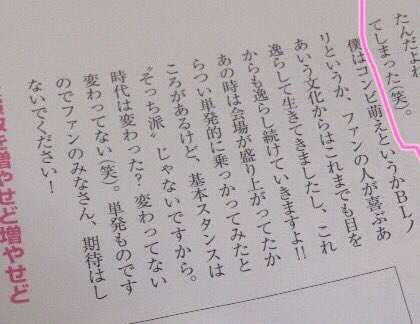 たんだよね
てしまった（笑）。
僕はコンビ萌えというかＢＬノ
リというか、ファンの人が喜ぶあ
あいう文化からはこれまでも目を
逸らして生きてきましたし、これ
からも逸らし続けていきますよ!!
あの時は会場が盛り上がってたか
らつい単発的に乗っかってみたと
ころがあるけど、基本スタンスは
〝そっち派〟じゃないですから。
時代は変わった？ 変わってない
変わってない（笑）。単発ものです
のでファンのみなさん、期待はし
ないでください！
を増やせど増やせど